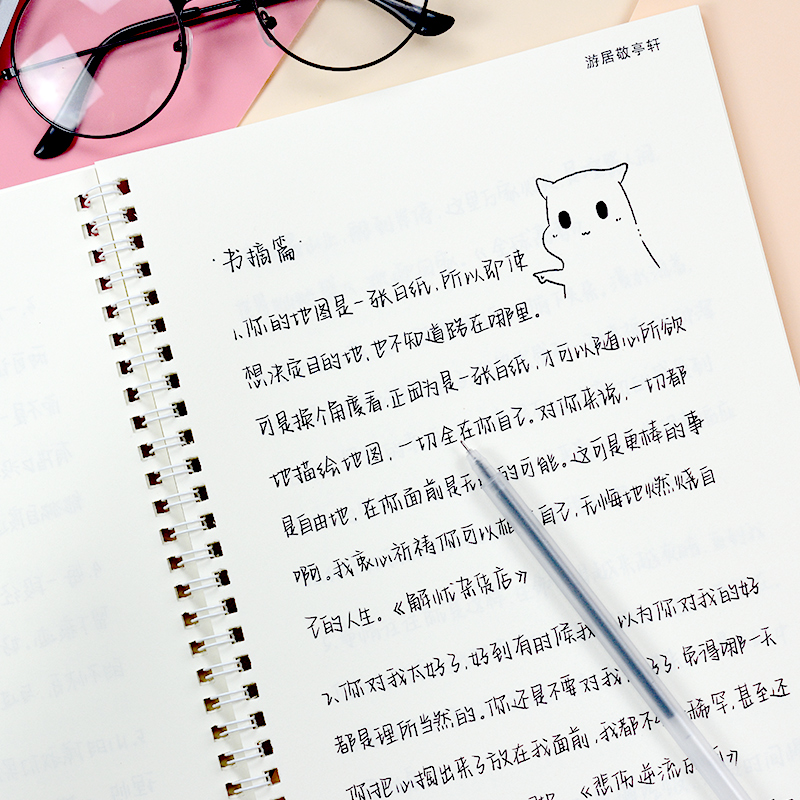 游居敬亭轩
·书摘篇·
1、你的地图是一张白纸，所以即使
想决定目的地，也不知道路在哪里。
可是换个角度看，正因为是一张白纸，才可以随心所欲
地描绘地图，一切全在你自己。对你来说，一切都
是自由地，在你面前是无 的可能。这可是更棒的事
啊。我衷心祈祷你可以相 自己，无悔地燃烧自
己的人生。《解忧杂货店》
2、你对我太好了，好到有的时候我 以为你对我的好
都是理所当然的。你还是不要对我 了，免得哪一天
你把心掏出来了放在我面前，我都不 稀罕，甚至还
《悲伤逆流 》